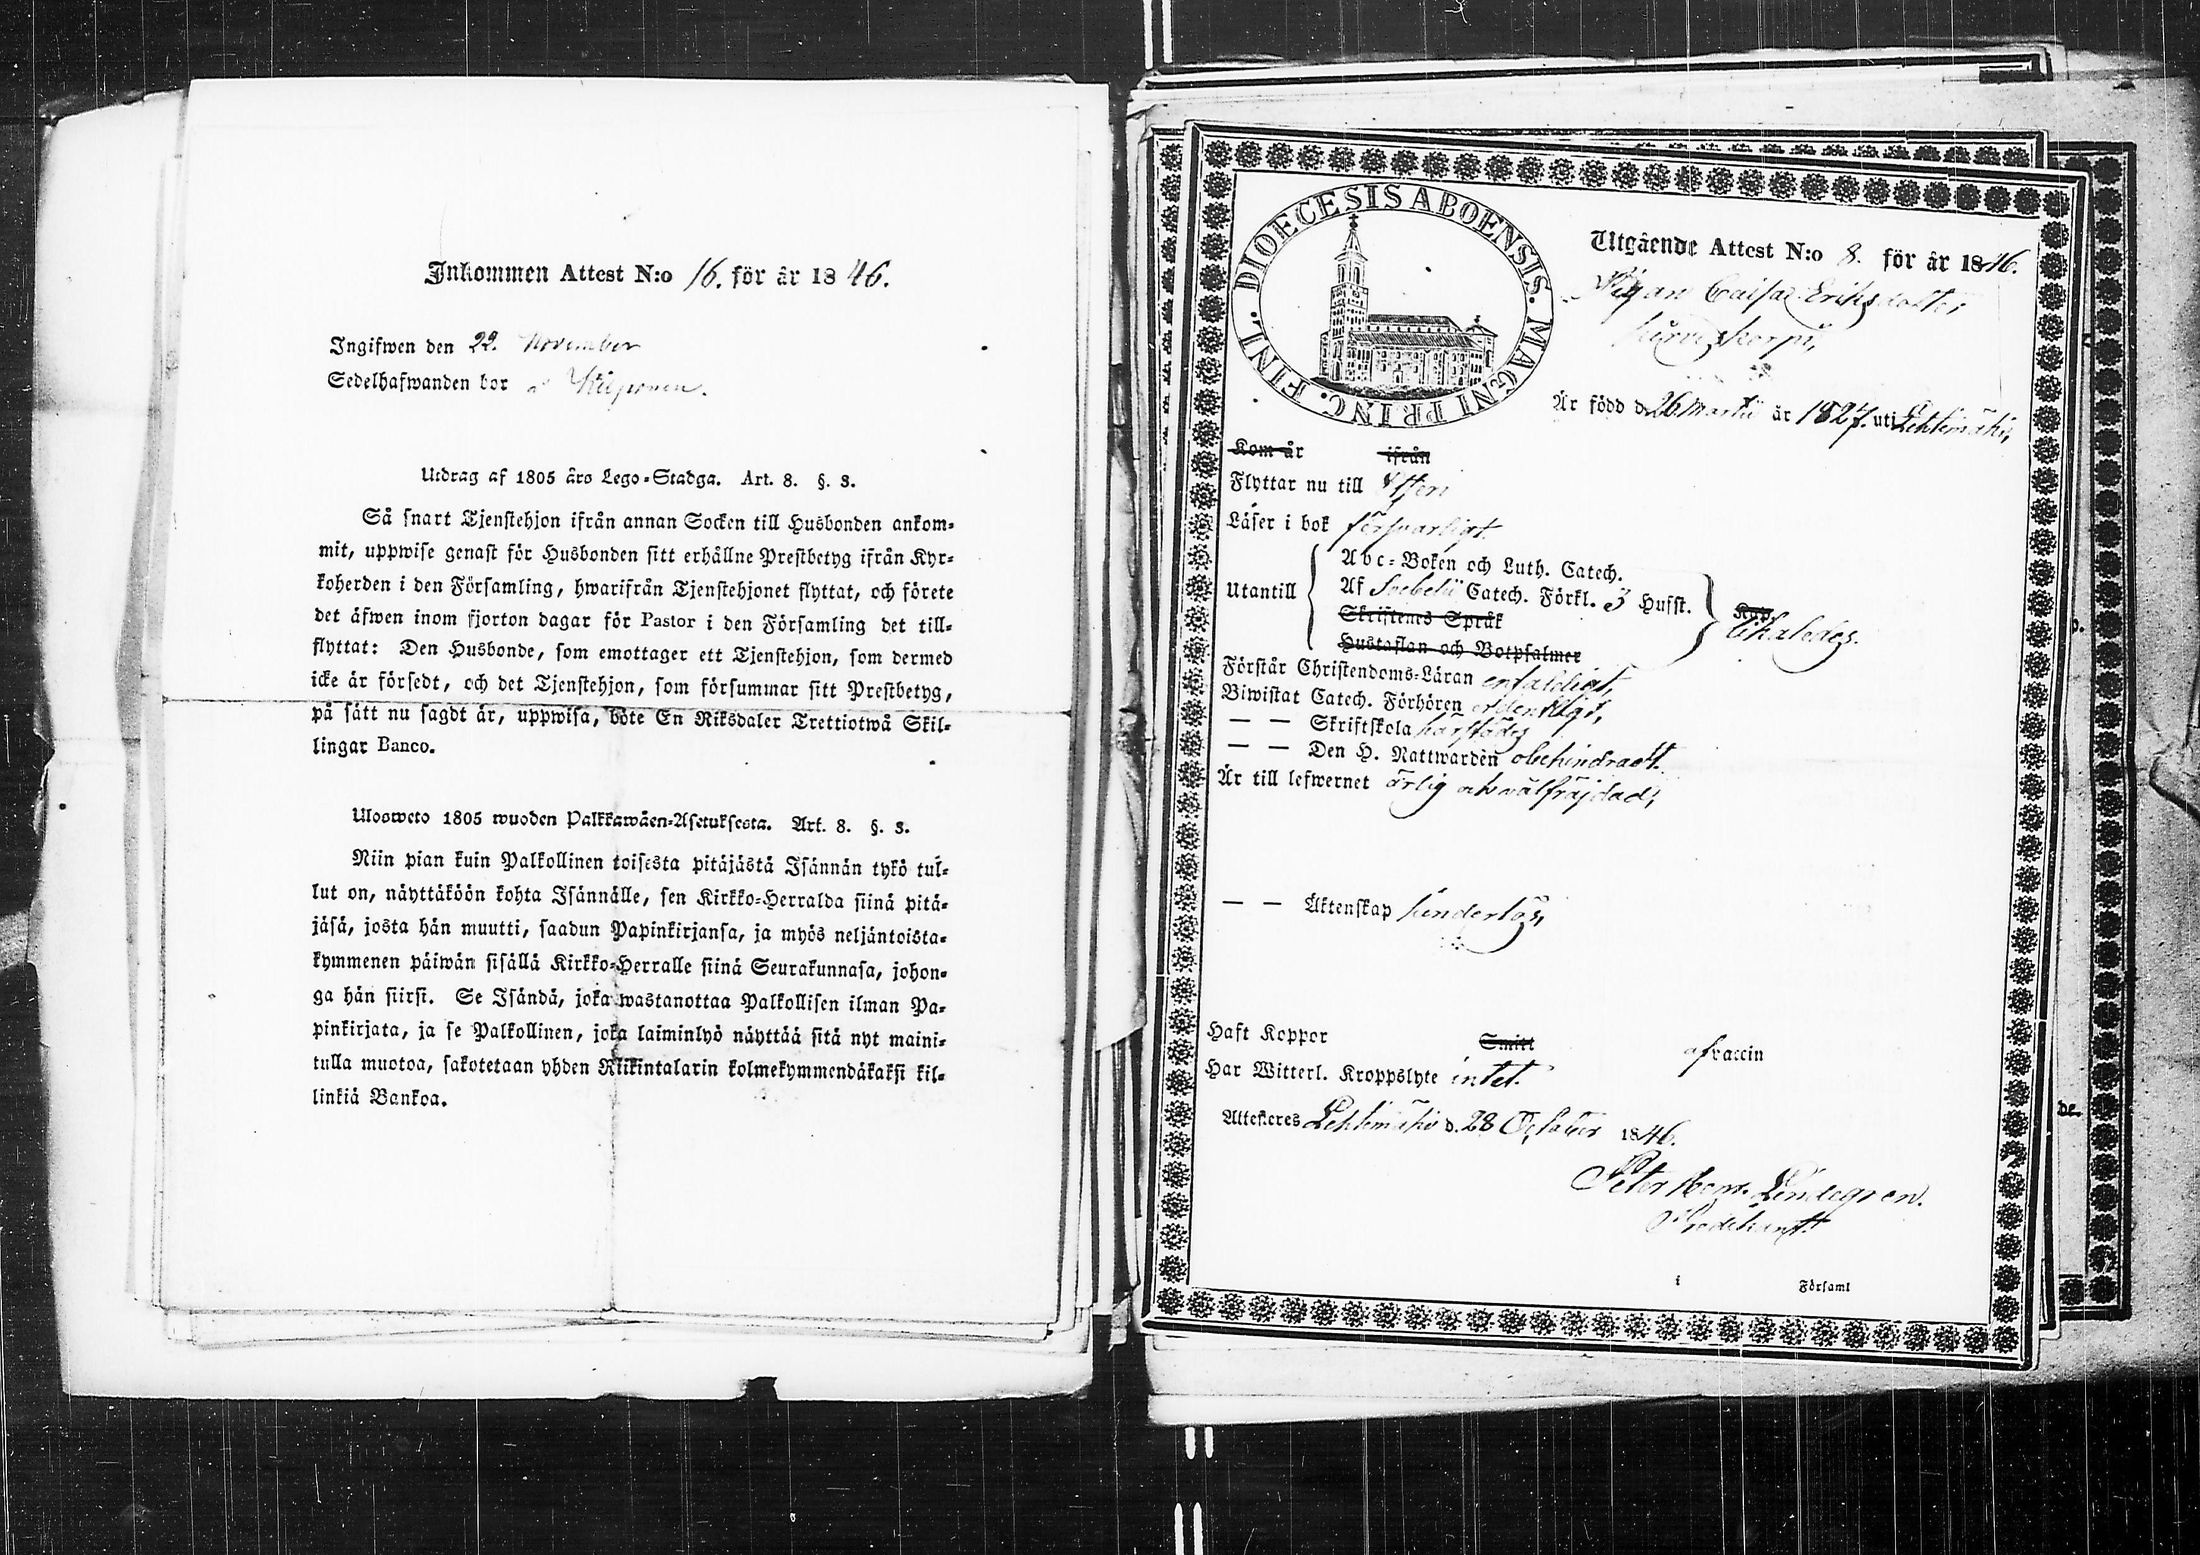 Inkommen Attest N:o 16. för år 1846.
Ingifwen den 22. November
Sedelhafwanden bor å Kilponen.
Utdrag af 1805 års Lego-Stadga. Art. 8. §. 3.
Så snart Tjenstehjon ifrån annan Socken till Husbonden ankom-
mit, uppwise genast för Husbonden sitt erhållne Prestbetyg ifrån Kyr-
koherden i den Församling, hwarifrån Tjenstehjonet flyttat, och förete
det äfwen inom fjorton dagar för Pastor i den Församling det till-
flyttat: Den Husbonde, som emottager ett Tjenstehjon, som dermed
icke är försedt, och det Tjenstehjon, som försummar sitt Prestbetyg,
på sätt nu sagdt är, uppwisa, böte En Riksdaler Trettiotwå Skil-
lingar Banco.
Ulosweto 1805 wuoden Palkkawäen-Asetuksesta. Art. 8. §. 3.
Niin pian kuin Palkollinen toisesta pitäjästä Isännän tykö tul-
lut on, näyttäköön kohta Isännälle, sen Kirkko-Herralda siinä pitä-
jäsä, josta hän muutti, saadun Papinkirjansa, ja myös neljäntoista-
kymmenen päiwän sisällä Kirkko-Herralle siinä Seurakunnasa, johon-
ga hän siirsi. Se Isändä, joka wastanottaa Palkollisen ilman Pa-
pinkirjata, ja se Palkollinen, joka laiminlyö näyttää sitä nyt maini-
tulla muotoa, sakotetaan yhden Riikintalarin kolmekymmendäkaksi kil-
linkiä Bankoa.
DIOECESIS ABOENSIS. MAGNI PRINC. FINL.
Utgående Attest N:o 8. för år 1846.
Pigan Caisa Eriksdotter
Är född d. 26 Martii år 1827. uti Lehtimäki,
Kom år ifrån
Flyttar nu till
Läser i bok försvarligt.
Abc-Boken och Luth. Catech.
Utantill Af Svebelii Catech. Förkl. 3 Hufst.
Skriftens Språk
Hustaflan och Botpsalmer
likaledes.
Förstår Christendoms-Läran enfaldigt,
Biwistat Catech. Förhören ordentligt,
— — Skriftskola härstädes
— — Den H. Nattwarden obehindradt.
Är till lefwernet ärlig och välfräjdad,
— — Äktenskap hinderlös,
Haft Koppor Smitt vaccin
Har Witterl. Kroppslyte intet.
Attesteres Lehtimäki d. 28 October 1846.
Peter Herm. Lindegren.
Predikant.
i Församl